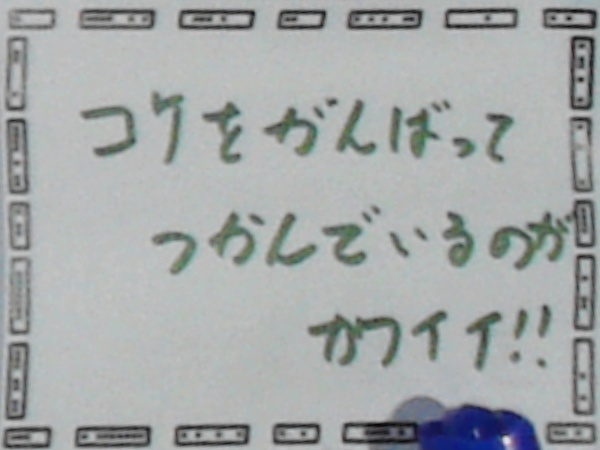 コケをがんばって
つかんでいるのが
カワイイ!!